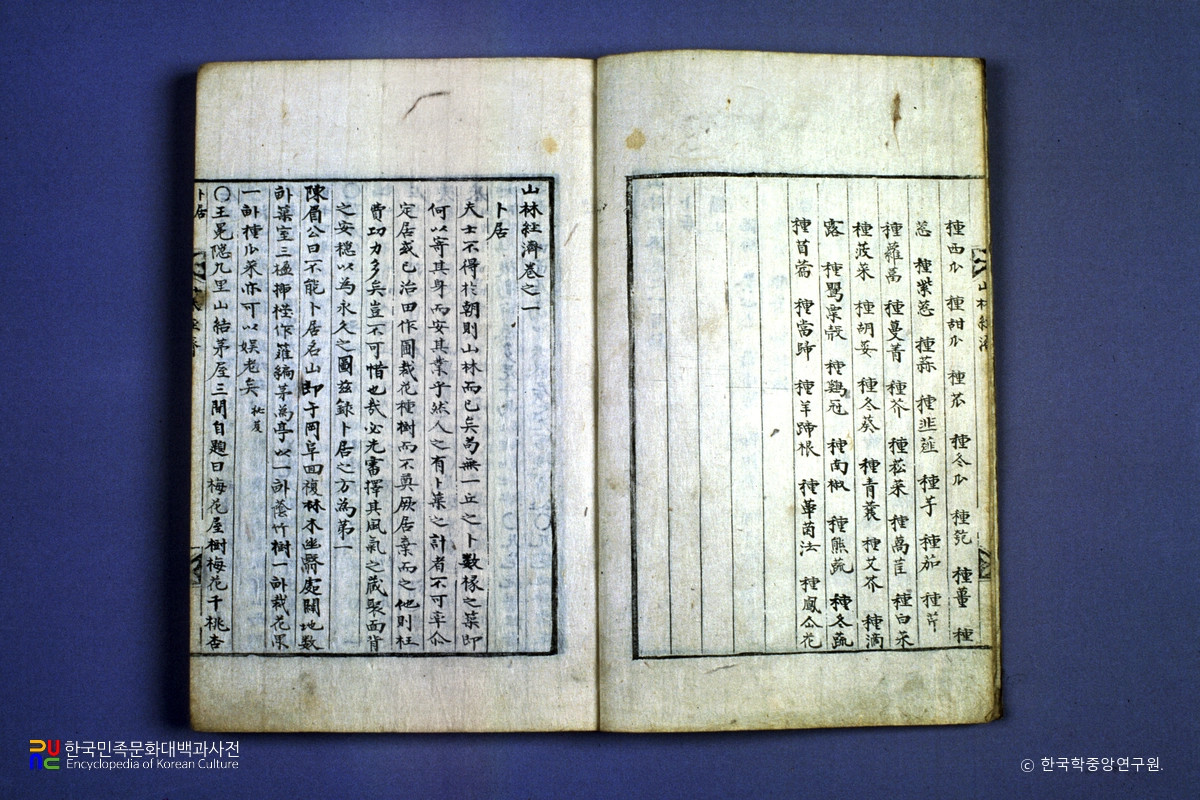 種西瓜 種甜瓜 種苽 種冬瓜 種匏 種薑 種
葱 種紫葱 種蒜 種韭薤 種芋 種茄 種芹
種蘿葍 種蔓菁 種芥 種菘菜 種萵苣 種白菜
種菠菜 種胡荽 種冬葵 種青蘘 種艾芥 種滴
露 種罌粟殼 種鷄冠 種南椒 種熊蔬 種冬蔬
種苜蓿 種當歸 種羊蹄根 種蕈茵法 種鳳仙花
山林経濟
山林経濟卷之一
卜居
夫士不得於朝則山林而已矣苟無一丘之卜數椽之築即
何以寄其身而安其業乎然人之有卜築之計者不可率尒
定居或已治田作圃栽花種樹而不奠厥居棄而之他則枉
費功力多矣豈不可惜也哉必先審擇其風氣之藏聚面背
之安穩以為永久之圖玆錄卜居之方為第一
陳眉公曰不能卜居名山即于岡阜回複林木幽翳處闢地數
畝築室三楹揷槿作籬編茅為亭以一畝蔭竹樹一畝栽花果
一畝種瓜菜亦可以娱老矣
〇王冕隠九里山結茅屋三間自題曰梅花屋樹梅花千桃杏
卜居
한국민족문화대백과사전
Encyclopedia of Korean Culture
ⓒ 한국학중앙연구원.